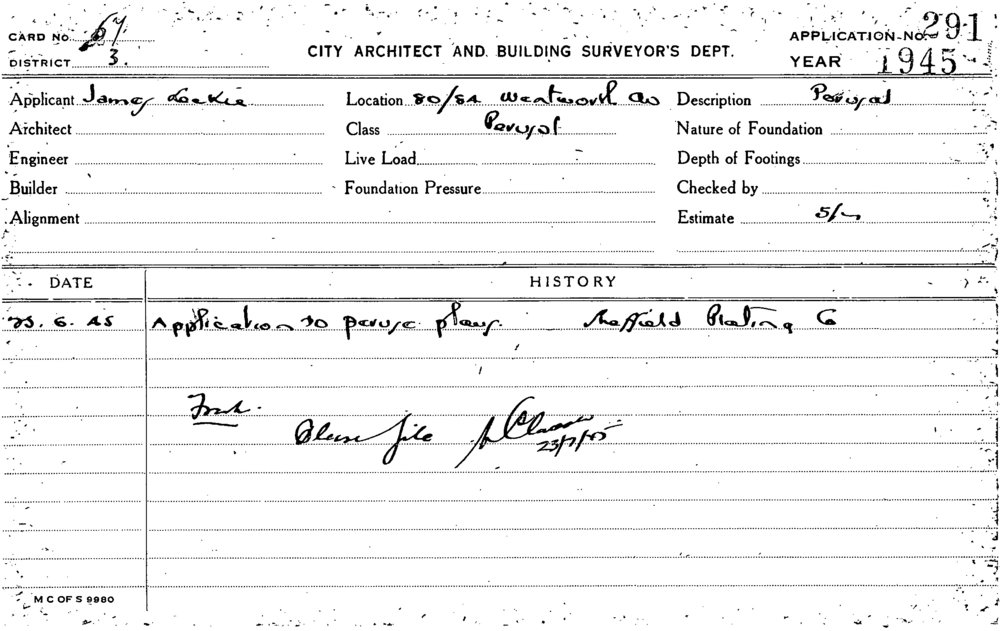 CARD NO. 67
APPLICATION NO. 291
DISTRICT 3.
CITY ARCHITECT AND BUILDING SURVEYOR'S DEPT.
YEAR 1945
Applicant James Leckie Location 80/84 Wentworth Av Description Perusal
Architect Class Perusal Nature of Foundation
Engineer Live Load Depth of Footings
Builder Foundation Pressure Checked by
Alignment Estimate 5/-
DATE HISTORY
25. 6. 45 Application to peruse plans. Sheffield Plating Co
Frank.
Please file
23/7/45
M C OF S 9980